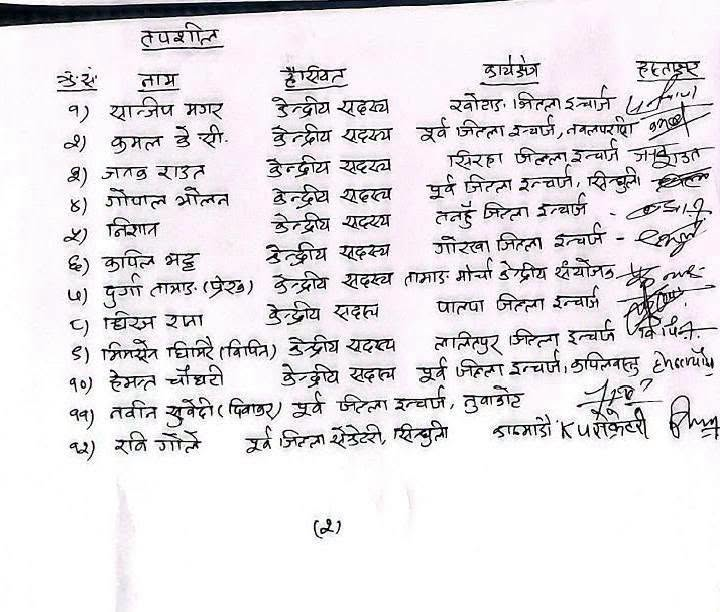 तपशील
क्र.सं. नाम हैसियत कार्यक्षेत्र हस्ताक्षर
१) सन्जिप मगर केन्द्रीय सदस्य खोटाङ जिल्ला इन्चार्ज
२) कमल के सी. केन्द्रीय सदस्य पूर्व जिल्ला इन्चार्ज, नवलपरासी
३) जनक राउत केन्द्रीय सदस्य सिरहा जिल्ला इन्चार्ज जनक राउत
४) गोपाल मोलन केन्द्रीय सदस्य पूर्व जिल्ला इन्चार्ज, सिन्धुली
५) निशान केन्द्रीय सदस्य तनहुँ जिल्ला इन्चार्ज -
६) कपिल भट्ट केन्द्रीय सदस्य गोरखा जिल्ला इन्चार्ज -
७) दुर्गा तामाङ (प्रेरक) केन्द्रीय सदस्य तामाङ मोर्चा केन्द्रीय संयोजक
८) धिरज राना केन्द्रीय सदस्य पाल्पा जिल्ला इन्चार्ज
९) घिमिरे (विपिन) केन्द्रीय सदस्य ललितपुर जिल्ला इन्चार्ज विपिन
१०) हेमन्त चौधरी केन्द्रीय सदस्य पूर्व जिल्ला इन्चार्ज, कपिलवस्तु
११) नवीन सुवेदी (दिवाकर) पूर्व जिल्ला इन्चार्ज, नुवाकोट
१२) रवि गोले पूर्व जिल्ला सेक्रेटरी, सिन्धुली काठमाडौं
(२)